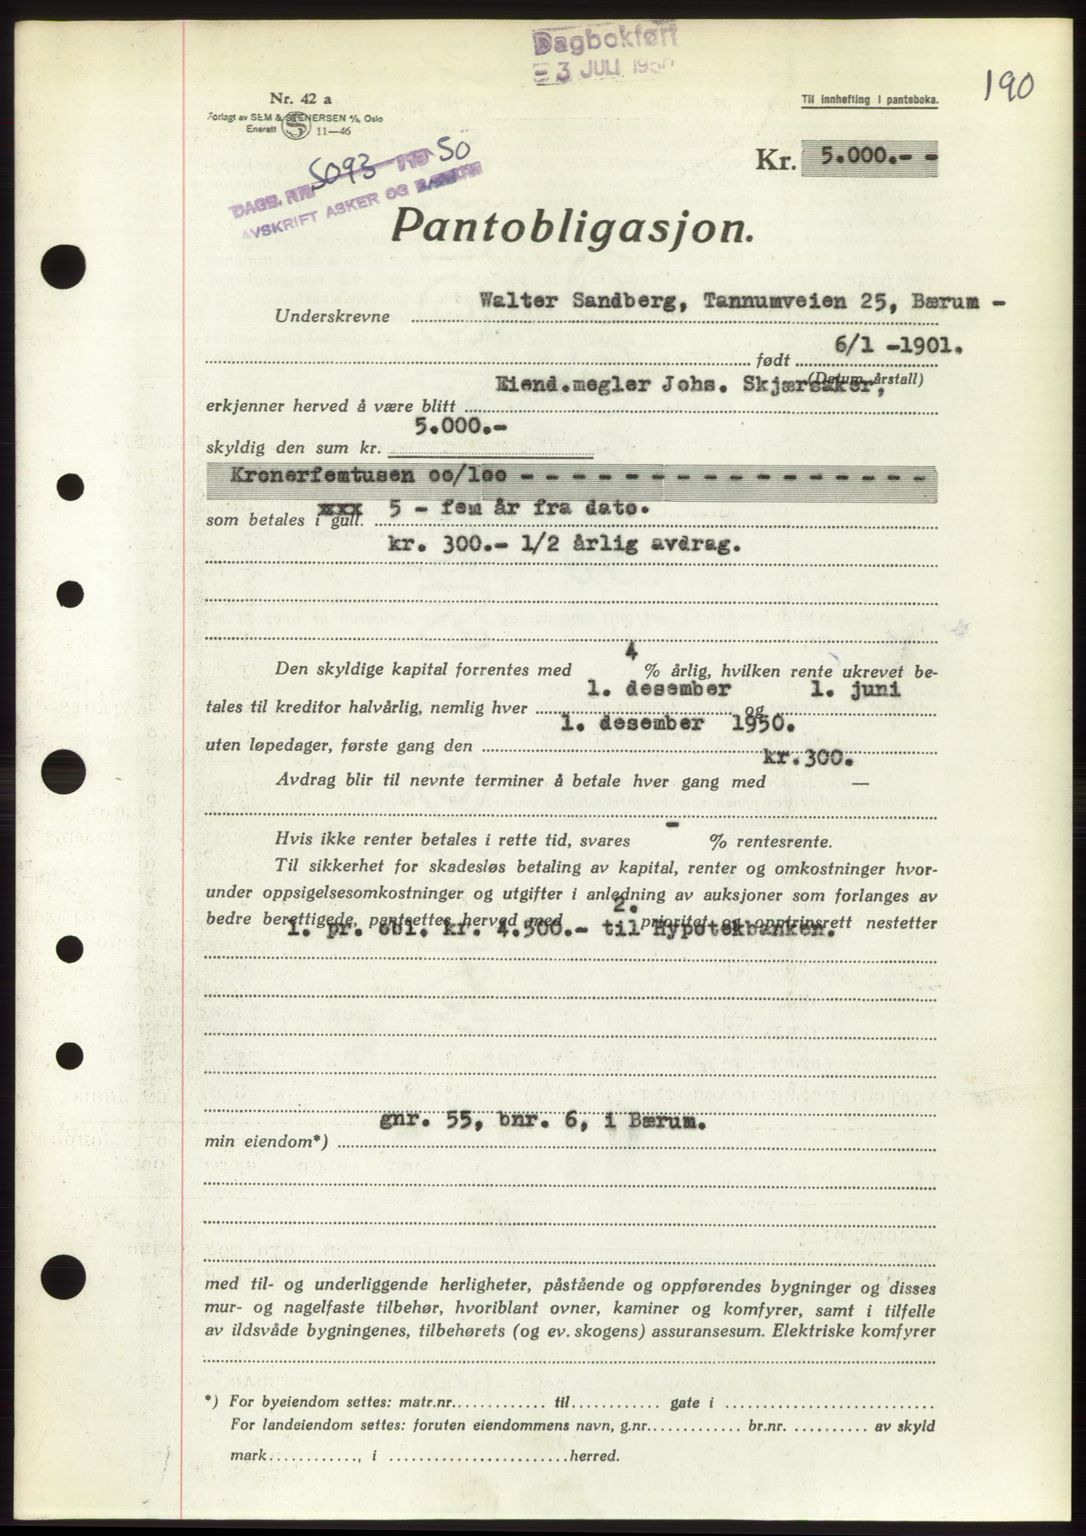 Dagbokført
= 3 JULI 1950
190
Nr. 42 a
Forlagt av SEM & STENERSEN A/S, Oslo
Enerett S 11—46
Til innhefting i panteboka.
Kr. 5.000.- -
DAGB. NR. 5093 /19 50
AVSKRIFT ASKER OG BÆRUM
Pantobligasjon.
Underskrevne Walter Sandberg, Tannumveien 25, Bærum -
født 6/1 -1901.
(Datum, årstall)
erkjenner herved å være blitt Eiend.megler Johs. Skjærsaker,
skyldig den sum kr. 5.000.-
Kronerfemtusen oo/100 - - - - - - - - - - - - - - - -
som betales i gull. xxx 5 - fem år fra dato.
kr. 300.- 1/2 årlig avdrag.
Den skyldige kapital forrentes med 4 % årlig, hvilken rente ukrevet be-
tales til kreditor halvårlig, nemlig hver 1. desember og 1. juni
uten løpedager, første gang den 1. desember 1950.
Avdrag blir til nevnte terminer å betale hver gang med kr.300. —
Hvis ikke renter betales i rette tid, svares - % rentesrente.
Til sikkerhet for skadesløs betaling av kapital, renter og omkostninger hvor-
under oppsigelsesomkostninger og utgifter i anledning av auksjoner som forlanges av
bedre berettigede, pantsettes herved med 2. prioritet og opptrinsrett nestetter
1. pr. obl. kr. 4.500.- til Hypotekbanken.
min eiendom*) gnr. 55, bnr. 6, i Bærum.
med til- og underliggende herligheter, påstående og oppførendes bygninger og disses
mur- og nagelfaste tilbehør, hvoriblant ovner, kaminer og komfyrer, samt i tilfelle
av ildsvåde bygningenes, tilbehørets (og ev. skogens) assuransesum. Elektriske komfyrer
*) For byeiendom settes: matr.nr. til gate i
For landeiendom settes: foruten eiendommens navn, g.nr. br.nr. av skyld
mark , i herred.